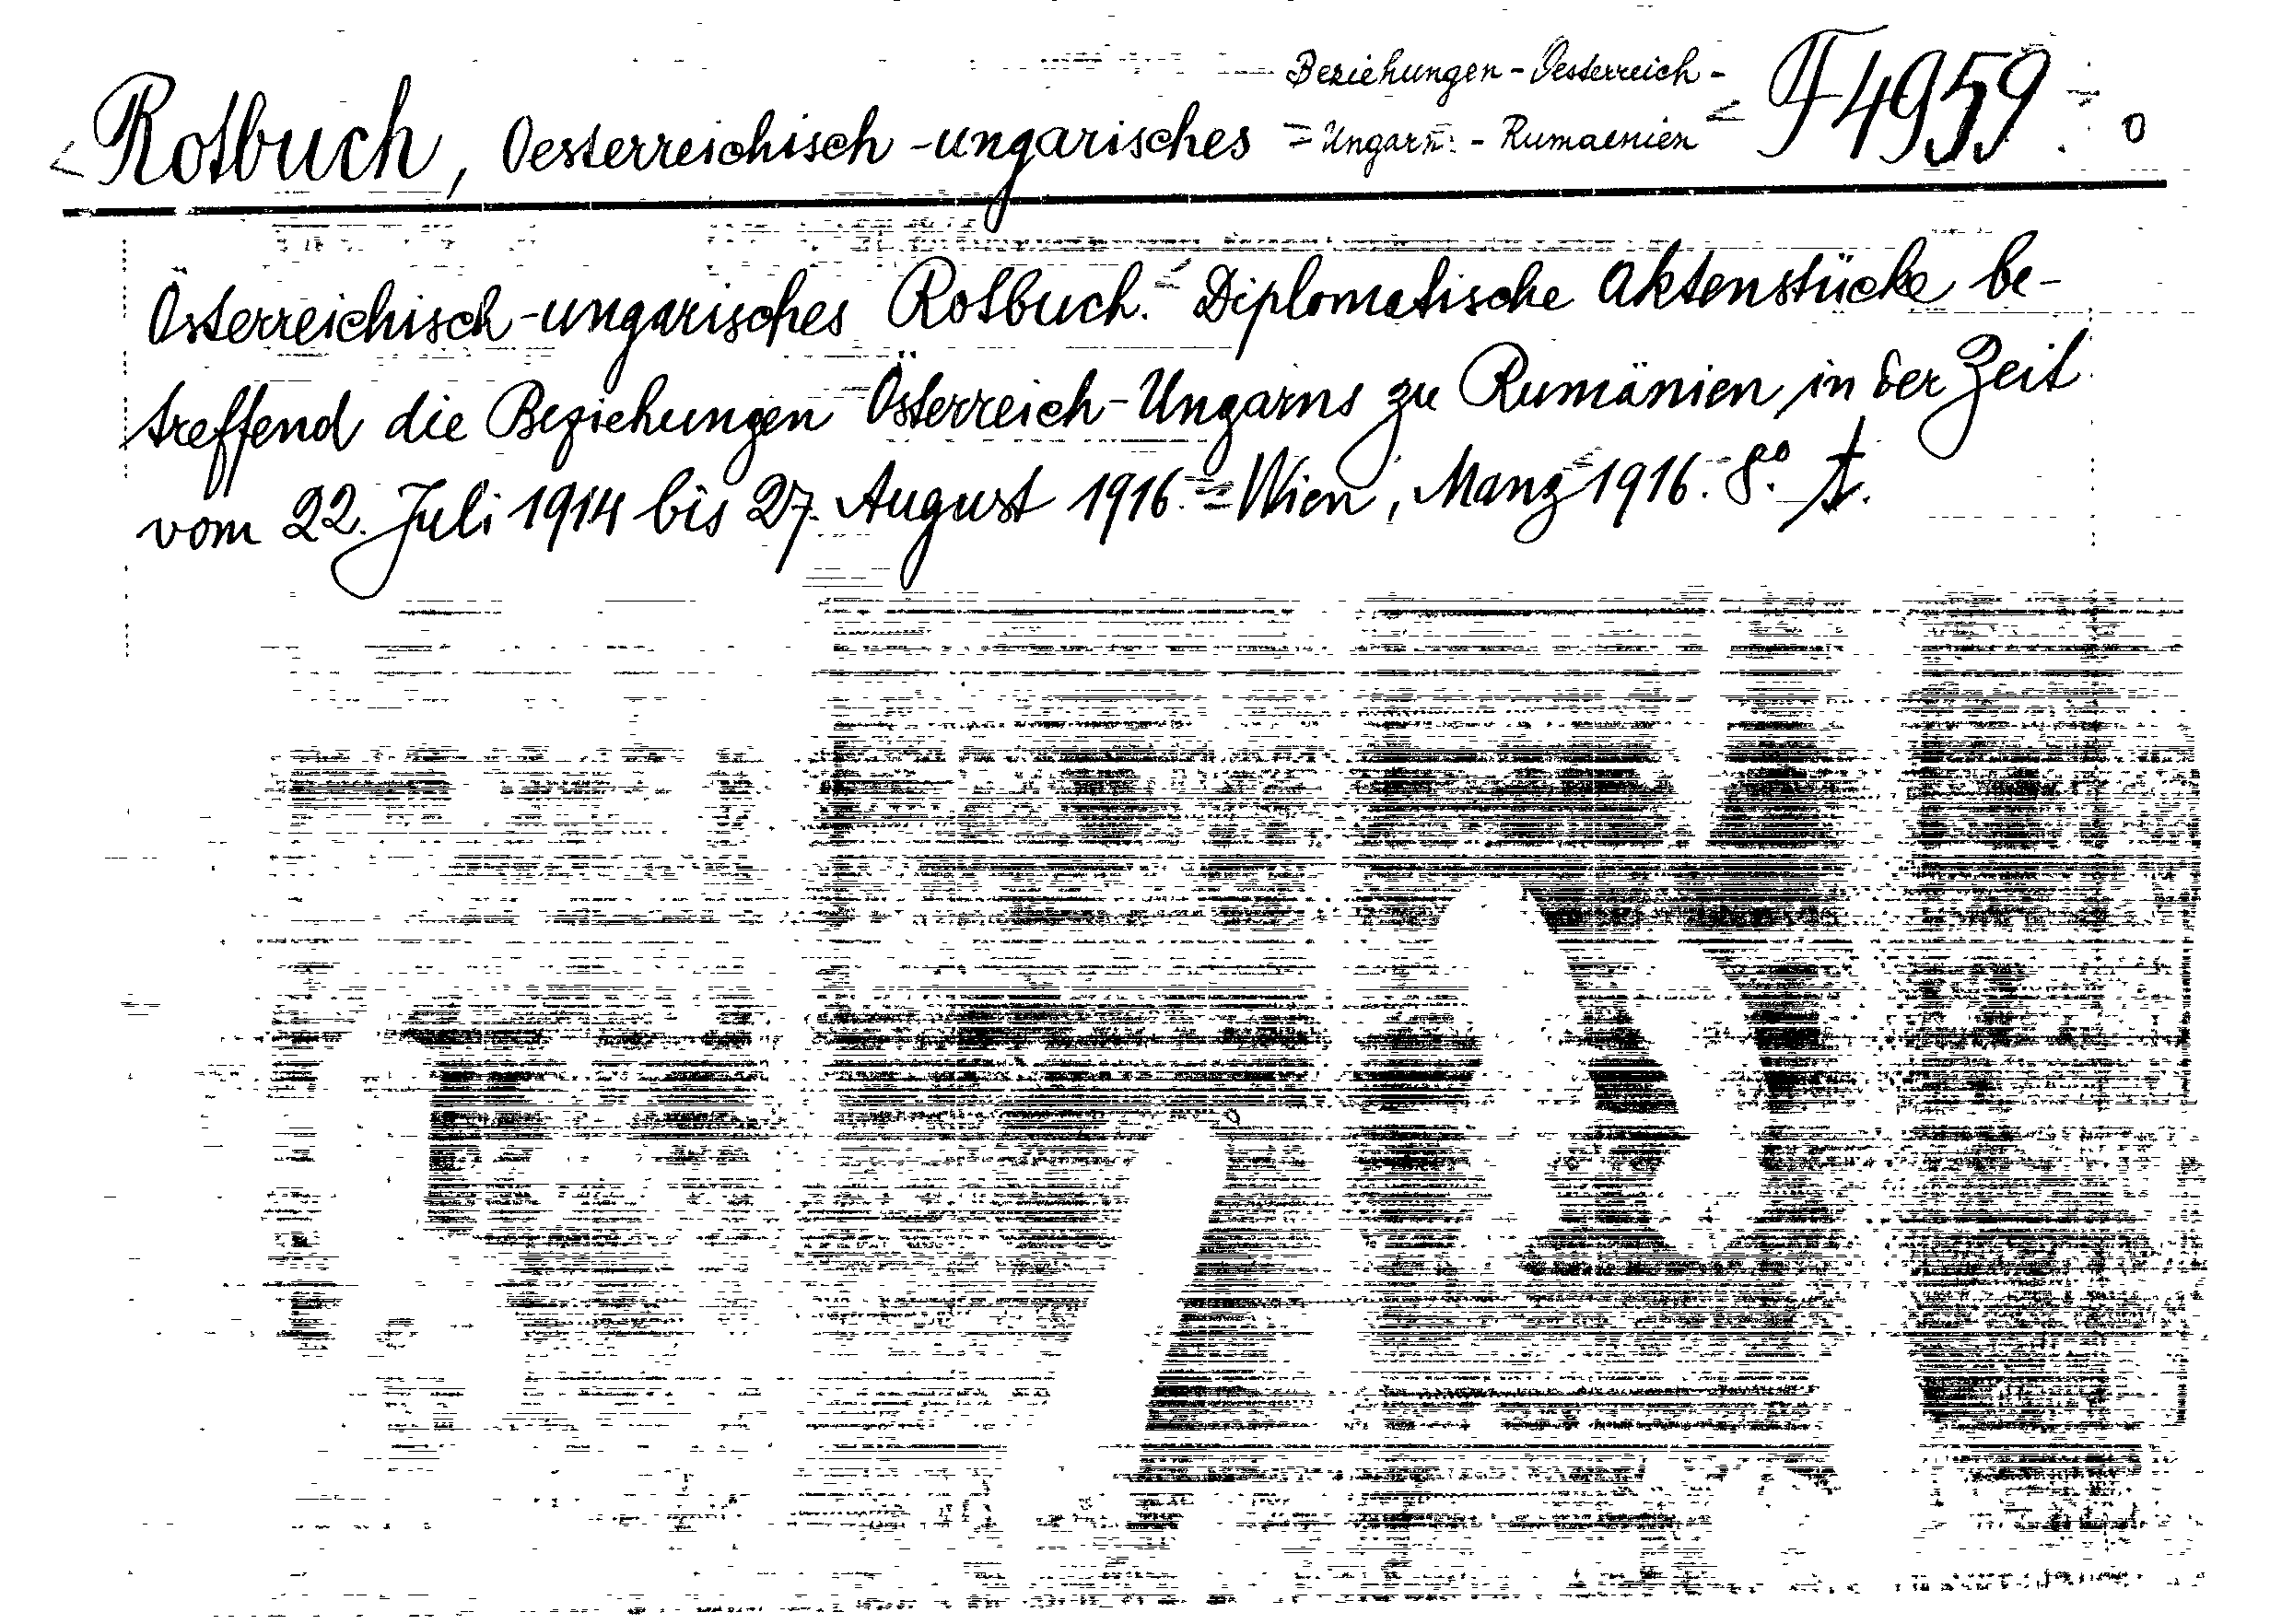 Beziehungen-Oesterreich-
Rotbuch, Oesterreichisch-ungarisches = Ungarn - Rumaenien F4959
Österreichisch-ungarisches Rotbuch. Diplomatische Aktenstücke be-
treffend die Beziehungen Österreich-Ungarns zu Rumänien in der Zeit
vom 22. Juli 1914 bis 27. August 1916. = Wien, Manz 1916. 8º.